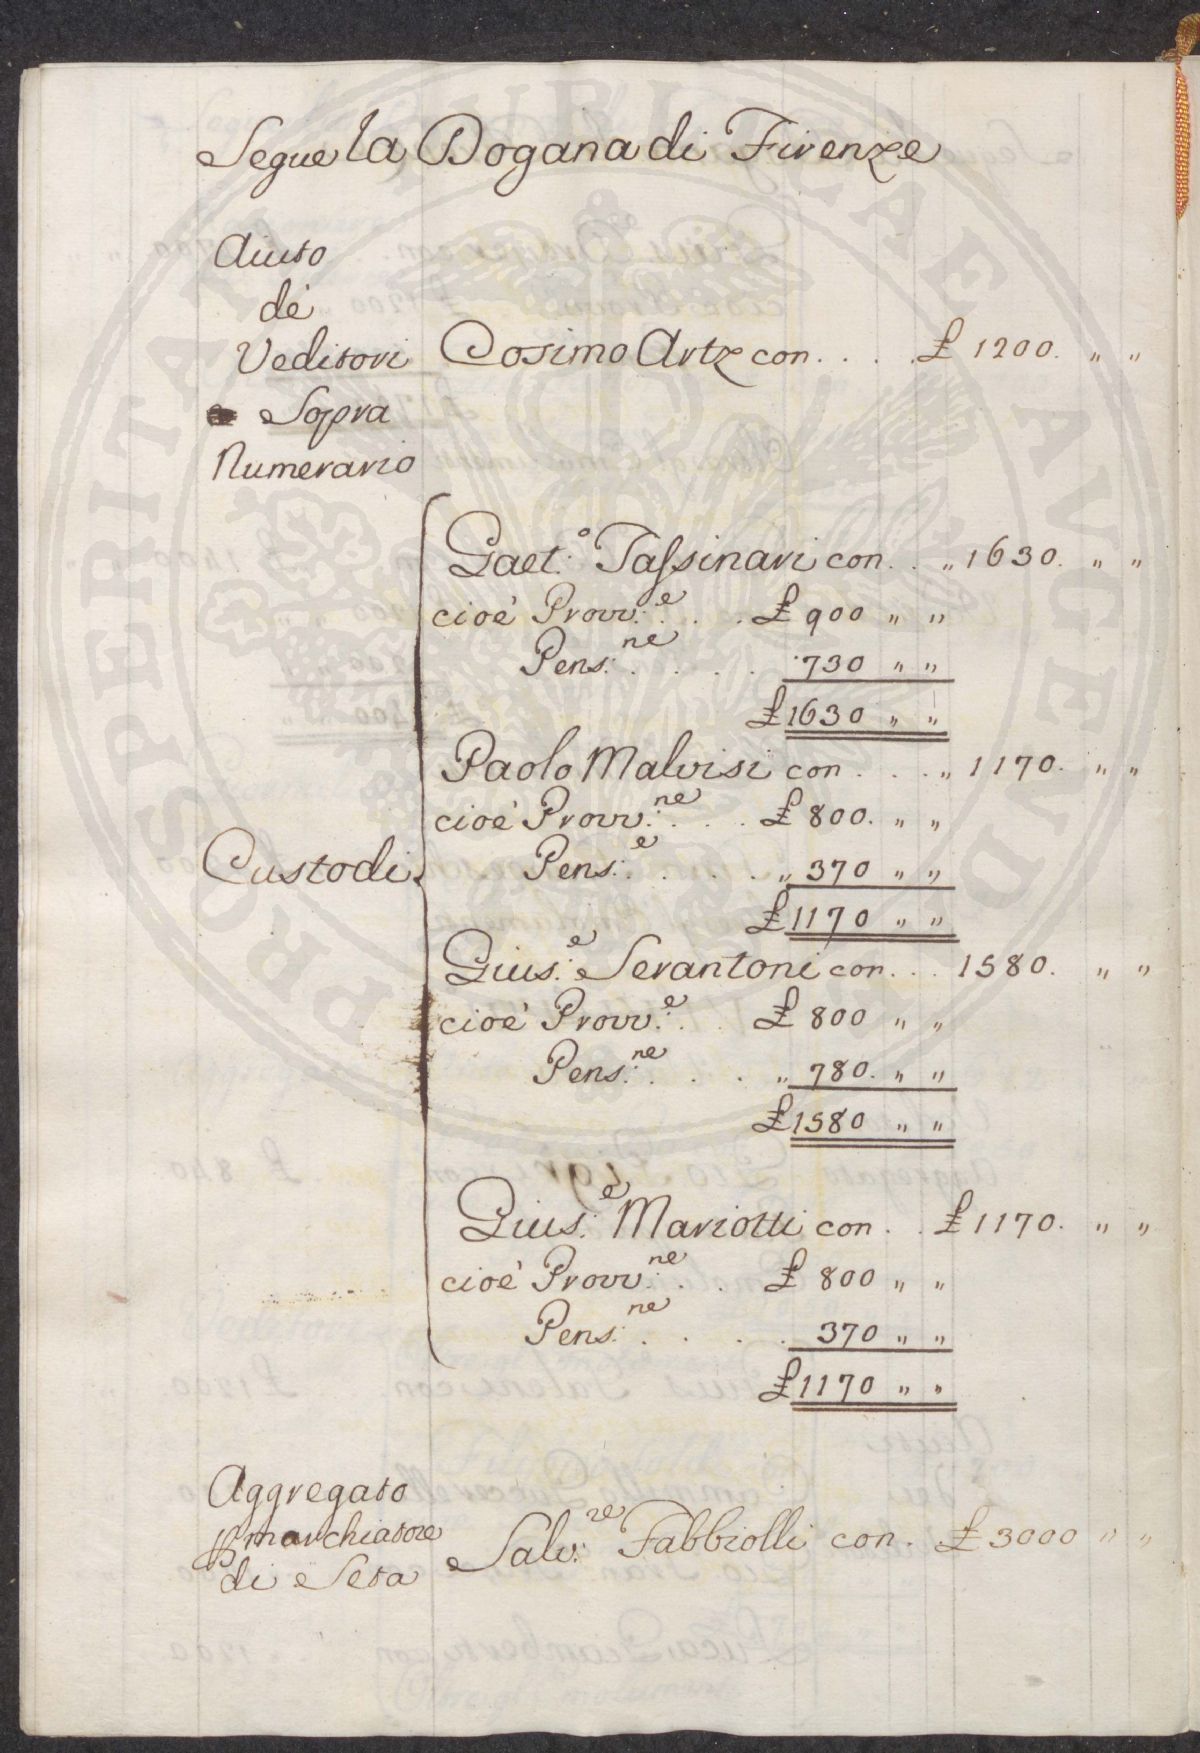 Segue la Dogana di Firenze
Aiuto
de'
Veditori Cosimo Artz con . . . . £ 1200. " "
e Sopra
Numerario
Gaet:º Tassinari con . . " 1630. " "
cioè Provv:e . . . £ 900 " "
Pens:ne . . . . 730 " "
£ 1630 " "
Paolo Malvisi con . . . . " 1170. " "
cioè Provv:ne . . . £ 800. " "
Custodi Pens:e . . . . " 370 " "
£ 1170 " "
Gius:e Serantoni con . . . 1580. " "
cioè Provv:e . . £ 800 " "
Pens:ne . . . " 780. " "
£ 1580 " "
Gius:e Mariotti con . . £ 1170. " "
cioè Provv:ne . . £ 800 " "
Pens:ne . . . . 370 " "
£ 1170 " "
Aggregato
p marchiatore Salv:re Fabbiolli con . £ 3000 " "
di Seta
PROSPERITATI PUBLICAE AUCT